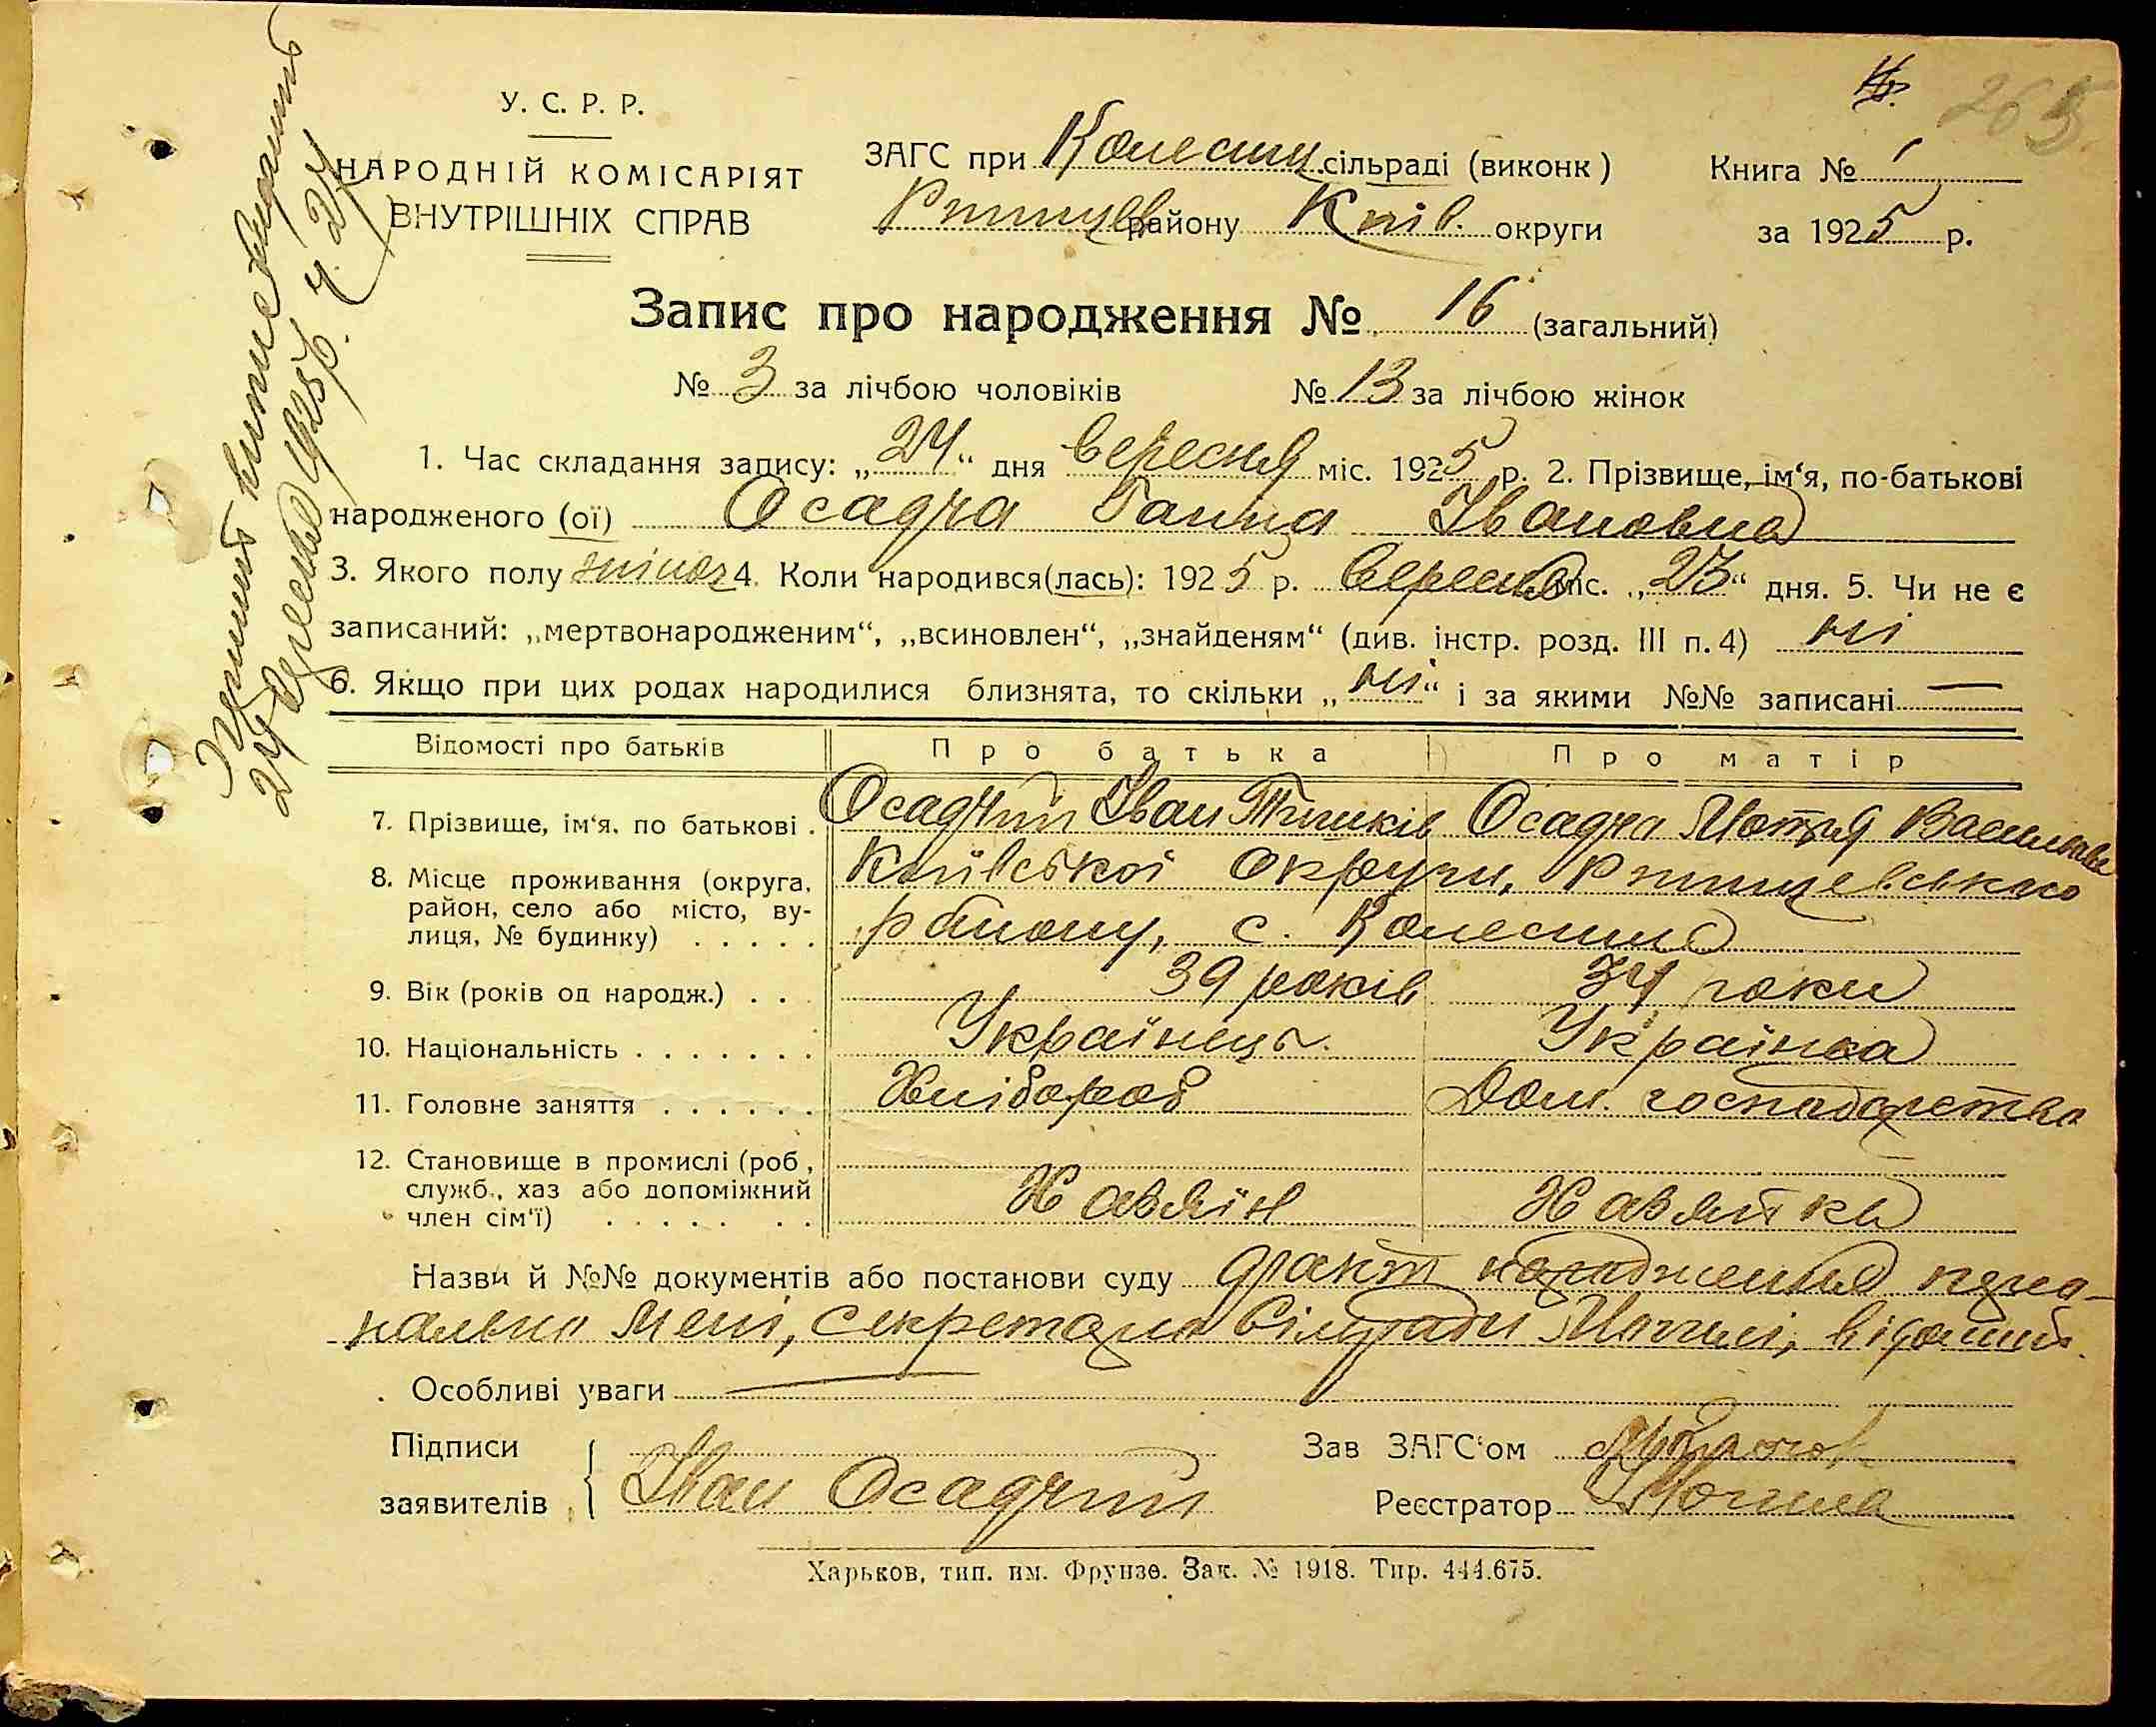 265
У. С. Р. Р.
НАРОДНІЙ КОМІСАРІЯТ
ВНУТРІШНІХ СПРАВ
ЗАГС при Колесищ. сільраді (виконк)
Ртищев району Київ. округи
Книга № 1
за 1925 р.
Запис про народження № 16 (загальний)
№ 3 за лічбою чоловіків № 13 за лічбою жінок
1. Час складання запису: „24“ дня вересня міс. 1925 р. 2. Прізвище, ім‘я, по-батькові
народженого (ої) Осадча Ганна Івановна
3. Якого полу жіноч 4. Коли народився(лась): 1925 р. вересня міс. „23“ дня. 5. Чи не є
записаний: „мертвонародженим“, „всиновлен“, „знайденям“ (див. інстр. розд. III п. 4) ні
6. Якщо при цих родах народилися близнята, то скільки „ні“ і за якими №№ записані —
Відомості про батьків Про батька Про матір
7. Прізвище, ім‘я, по батькові . Осадчий Іван Осадча Мотря Васильівн
8. Місце проживання (округа, район, село або місто, вулиця, № будинку) . . . . . Київської округи, Ртищевського
району, с.
9. Вік (років од народж.) . . . 39 років 34 роки
10. Національність . . . . . . . Українець. Українка
11. Головне заняття . . . . . . Хлібороб Дом. господарство
12. Становище в промислі (роб,
служб., хаз або допоміжний
член сім‘ї) . . . . . . . Хазяїн Хазяйка
Назви й №№ документів або постанови суду факт народження персо-
нально мені, секретарю Сільради Могилі, відомий.
Особливі уваги —
Підписи
заявителів Іван Осадчий
Зав ЗАГС‘ом
Реєстратор Могила
Харьков, тип. им. Фрунзе. Зак. № 1918. Тир. 444.675.
24 вересня 1925 р. Ч. 24